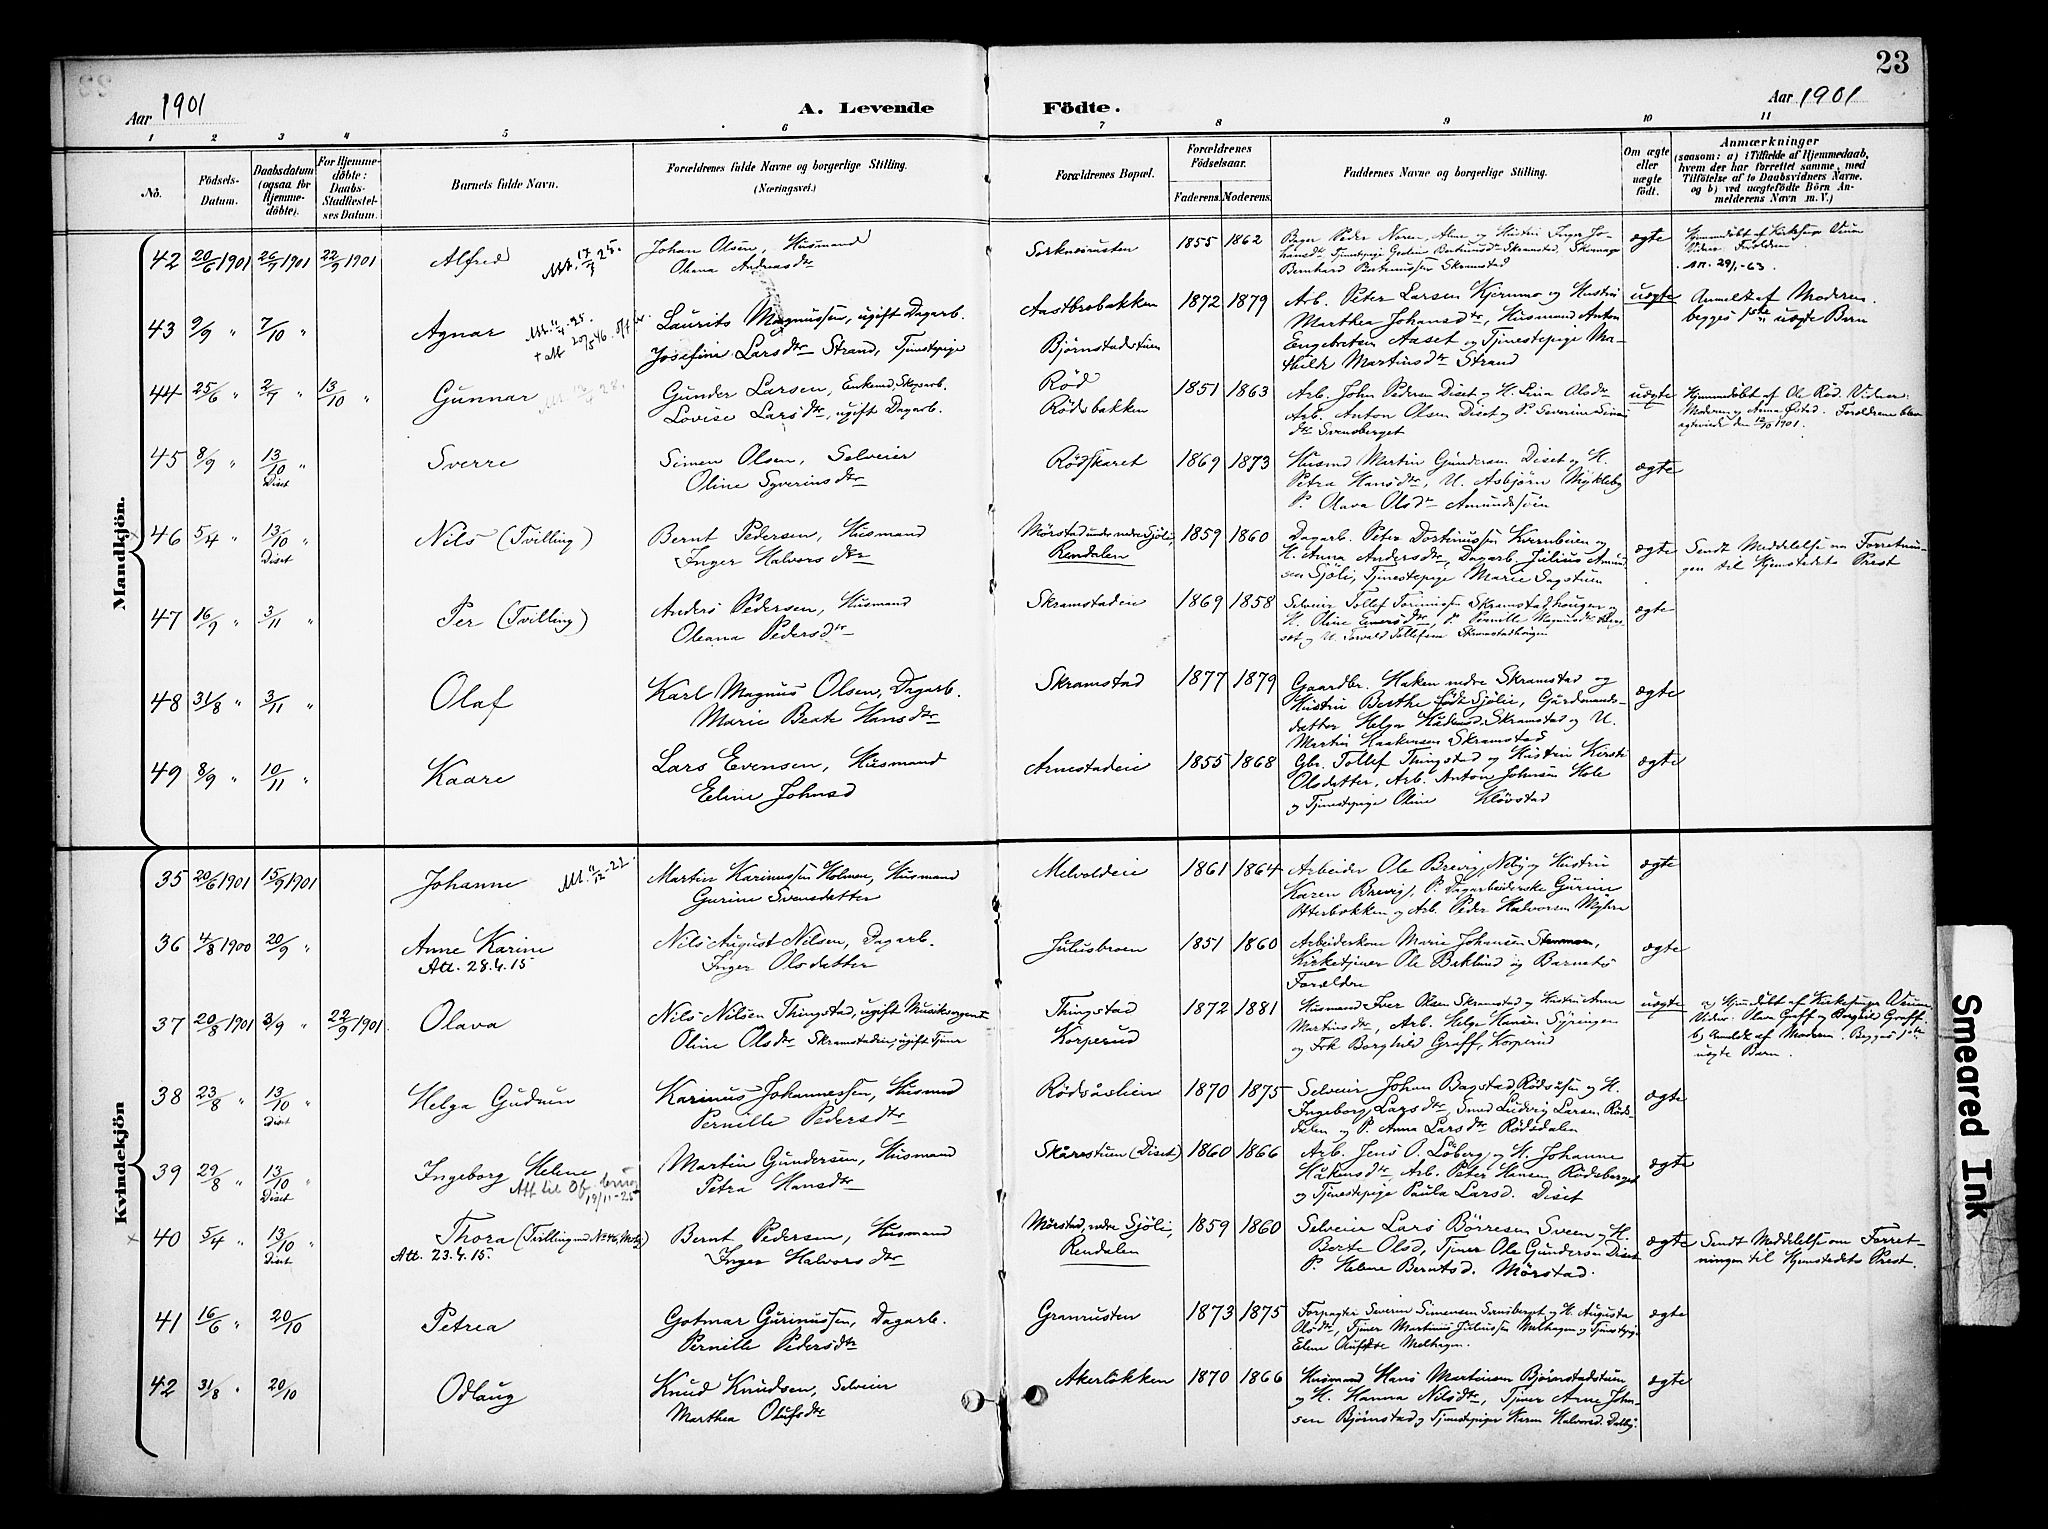 23
Aar 1901
A. Levende Födte.
Aar 1901
1 2 3 4 5 6 7 8 9 10 11
No.
Födsels-Datum.
Daabsdatum (ogsaa for Hjemmedöbte).
For Hjemmedöbte: Daabs-Stadfæstelses Datum.
Barnets fulde Navn.
Forældrenes fulde Navne og borgerlige Stilling.
(Næringsvei.)
Forældrenes Bopæl.
Forældrenes Födselsaar.
Faderens. Moderens.
Faddernes Navne og borgerlige Stilling.
Om ægte eller uægte födt.
Anmærkninger
(saasom: a) i Tilfælde af Hjemmedaab,
hvem der har forrettet samme, med
Tilföielse af to Daabsvidners Navne,
og b) ved uægtefödte Börn Anmelderens Navn m. V.)
Mandkjön.
42 20/6 1901 26/9 1901 22/9 1901 Alfred Johan Olsen, Husmand
Oleana Andreasdtr
Sorknesrusten 1855 1862
Bernhard Skramstad
ægte
43 9/9 " 7/10 " Agnar Laurits Magnussen, ugift Dagarb.
Josefine Larsdtr Strand, Tjenestepige
Aastbrobakken
Björnstadstuen
1872 1879 Arb. Peter Larsen Kjernmo og Hustru
Marthea Johansdtr, Husmand Anton
Engebretsen Aaset og Tjenestepige Ma-
thilde Martinsdtr Strand
uægte Anmeldt af Moderen.
begges 1ste uægte Barn
44 25/6 " 2/7 " 13/10 " Gunnar Gunder Larsen, Enkemd, Skogsarb.
Lovise Larsdtr, ugift Dagarb.
Röd
Rödsbakken
1851 1863 Arb. John Pedersen Diset og H. Lina Olsdtr
Arb. Anton Olsen Diset og P. Severine Simensdtr Svensberget
uægte Hjemmedöbt af Ole Röd. Vidner:
Moderen og Anna Östad. Forældrene blev
ægteviede den 12/10 1901.
45 8/9 " 13/10 " Diset Sverre Simen Olsen, Selveier
Oline Syverinsdtr
Rödskaret 1869 1873 Husmd Martin Gundersen Diset og H.
Petra Hansdtr, U. Asbjörn Mykleby
P. Olava Olsdtr Amundssöen
ægte
46 5/4 " 13/10 " Diset Nils (Tvilling) Bernt Pedersen, Husmand
Inger Halvorsdtr
Mörstad under nedre Sjöli,
Rendalen
1859 1860 Dagarb. Peter Dortinussen Kvernbeien og
H. Anna Andersdtr, Dagarb. Julius Amund-
sen Sjöli, Tjenestepige Marie Sagstuen
ægte Sendt Meddelelse om Forretnin-
gen til Hjemstedets Prest
47 16/9 " 3/11 " Per (Tvilling) Anders Pedersen, Husmand
Oleana Pedersdtr
Skramstadeie 1869 1858
ægte
48 31/8 " 3/11 " Olaf Karl Magnus Olsen, Dagarb.
Marie Beate Hansdtr
Skramstad 1877 1879 Gaardbr. Haken nedre Skramstad og
Hustru Berthe född Sjölie, Gårdmands-
datter Helga Skramstad og U.
Martin Haakensen Skramstad
ægte
49 8/9 " 10/11 " Kaare Lars Evensen, Husmand
Eline Johnsd
Arnestadeie 1855 1868 Gbr. Tollef Thingstad og Hustru Kirsti
Olsdatter, Arb. Anton Johnsen Hole
og Tjenestepige Oline Klövstad
ægte
Kvindekjön
35 20/6 1901 15/9 1901 Johanne Martin Karinussen Holmen, Husmand
Gurine Svensdatter
Melvoldeie 1861 1864 Arbeider Ole Brevig, Neby og Hustru
Karen Brevig, P. Dagarbeiderske Gurine
Atterbakken og Arb. Peder Halvorsen Myhre
ægte
36 4/8 1900 20/9 " Anne Karine
Att. 28.4.15
Nils August Nilsen, Dagarb.
Inger Olsdatter
Juliusbroen 1851 1860 Arbeiderkone Marie Johansen
Kirketjener Ole Beklund og Barnets
Forældre
ægte
37 20/8 1901 3/9 " 22/9 1901. Olava Nils Nilsen Thingstad, ugift Musiksergent
Oline Olsdtr Skramstadeie, ugift Tjener
Thingstad
Korperud
1872 1881 Husmand Iver Olsen Skramstad og Hustru Anne
Martinsdtr, Arb. Helge Hansen Syringen
og Frk Borghild Graff, Korperud
uægte a) Hjemdöbt af Kirkesanger Evenn
Vidner: Olava Graff og Borghild Graff.
b) Anmeldt af Moderen. Begges 1ste
uægte Barn.
38 23/8 " 13/10 " Diset Helga Gudrun Karinus Johannessen, Husmand
Pernille Pedersdtr
Rödsåslien 1870 1875 Selveier Johan Bagstad Rödsåsen og H.
Ingeborg Larsdtr, Smed Ludvig Larsen Röds-
dalen og P. Anna Larsdtr Rödsdalen
ægte
39 29/8 " 13/10 " Diset Ingeborg Helene
19/11-25
Martin Gundersen, Husmand
Petra Hansdtr
Skårestuen (Diset) 1860 1866 Arb. Jens O. Löberg og H. Johanne
Håkensdtr, Arb. Peter Hansen Rödsberget
og Tjenestepige Paula Larsd. Diset
ægte
40 5/4 " 13/10 " Diset Thora (Tvilling med No 46, Mstkj)
Att. 23.4.15.
Bernt Pedersen, Husmand
Inger Halvorsdtr
Mörstad, nedre Sjöli,
Rendalen
1859 1860 Selveier Lars Börresen Sveen og H.
Berte Olsd, Tjener Ole Gundersen Diset
P. Helene Berntsd. Mörstad.
ægte Sendt Meddelelse om Forret-
ningen til Hjemstedets Prest.
41 16/6 " 20/10 Petrea Gotmar Gurinussen, Dagarb.
Pernille Pedersdtr
Granrusten 1873 1875 Forpagter Severin Simensen Svensberget og H. Augusta
Olsdtr, Tjener Martinus Juliussen Melhagen og Tjenestepige
Elene Melhagen.
ægte
42 31/8 " 20/10 Odlaug Knud Knudsen, Selveier
Marthea Olufsdtr
Akerlökken 1870 1866 Husmand Hans Martinsen Björnstadstuen
og H. Hanna Nilsdtr, Tjener Arne John-
sen Björnstad og Tjenestepige Karen Halvorsd. Dalby.
ægte
Smeared Ink